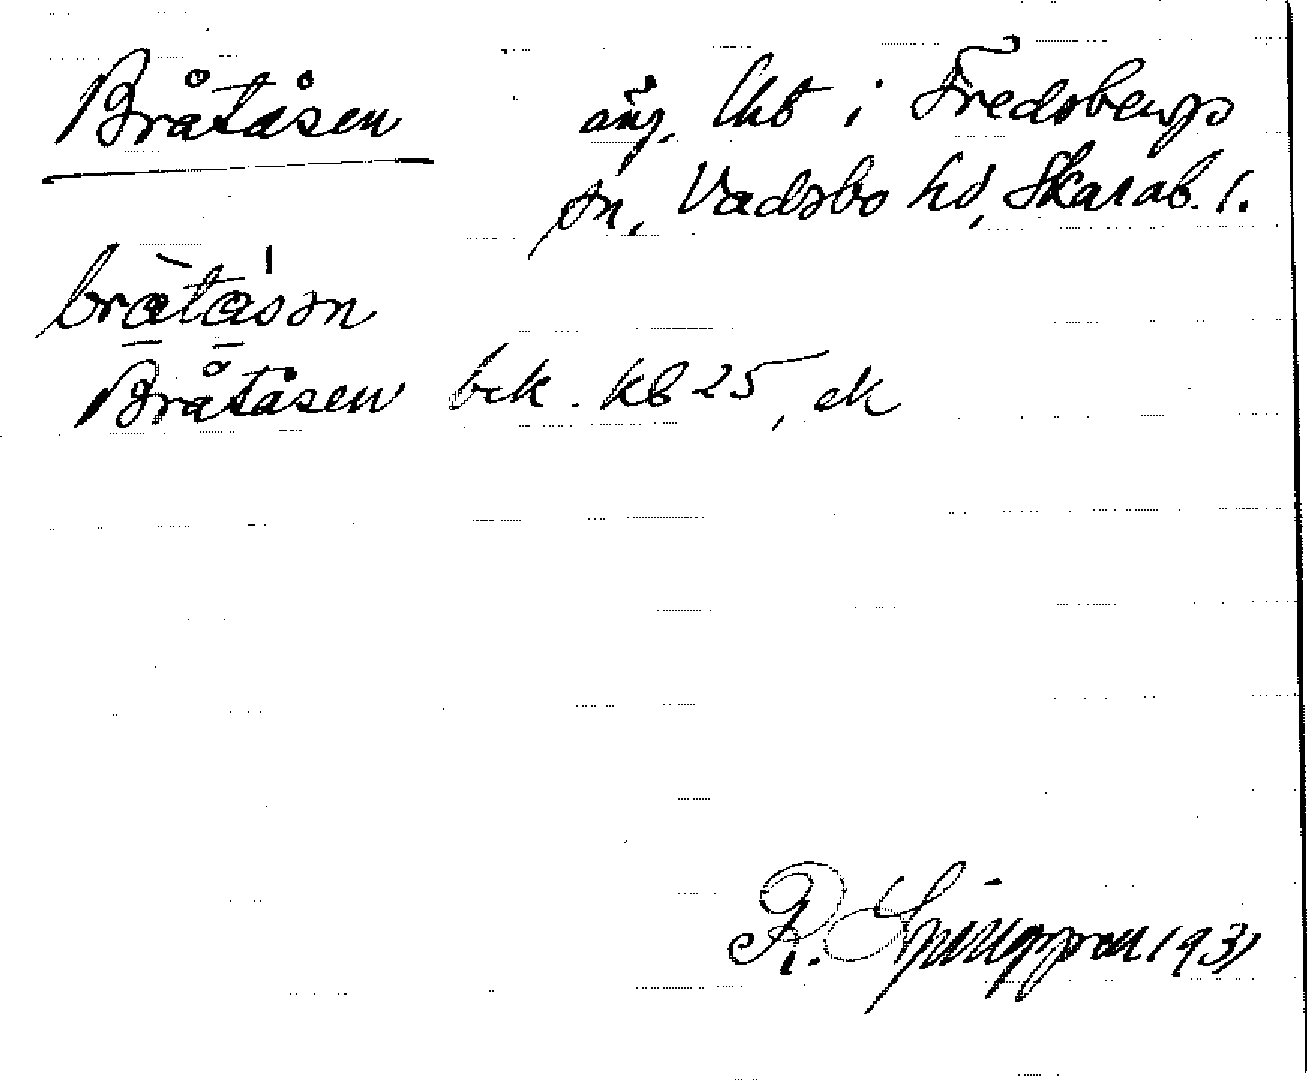 Bråtåsen äng. Ukb i Fredsbergs
sn, Vadsbo hd, Skarab. l.
bråtåsən
Bråtåsen bek. kb 25, ek
R. 1931